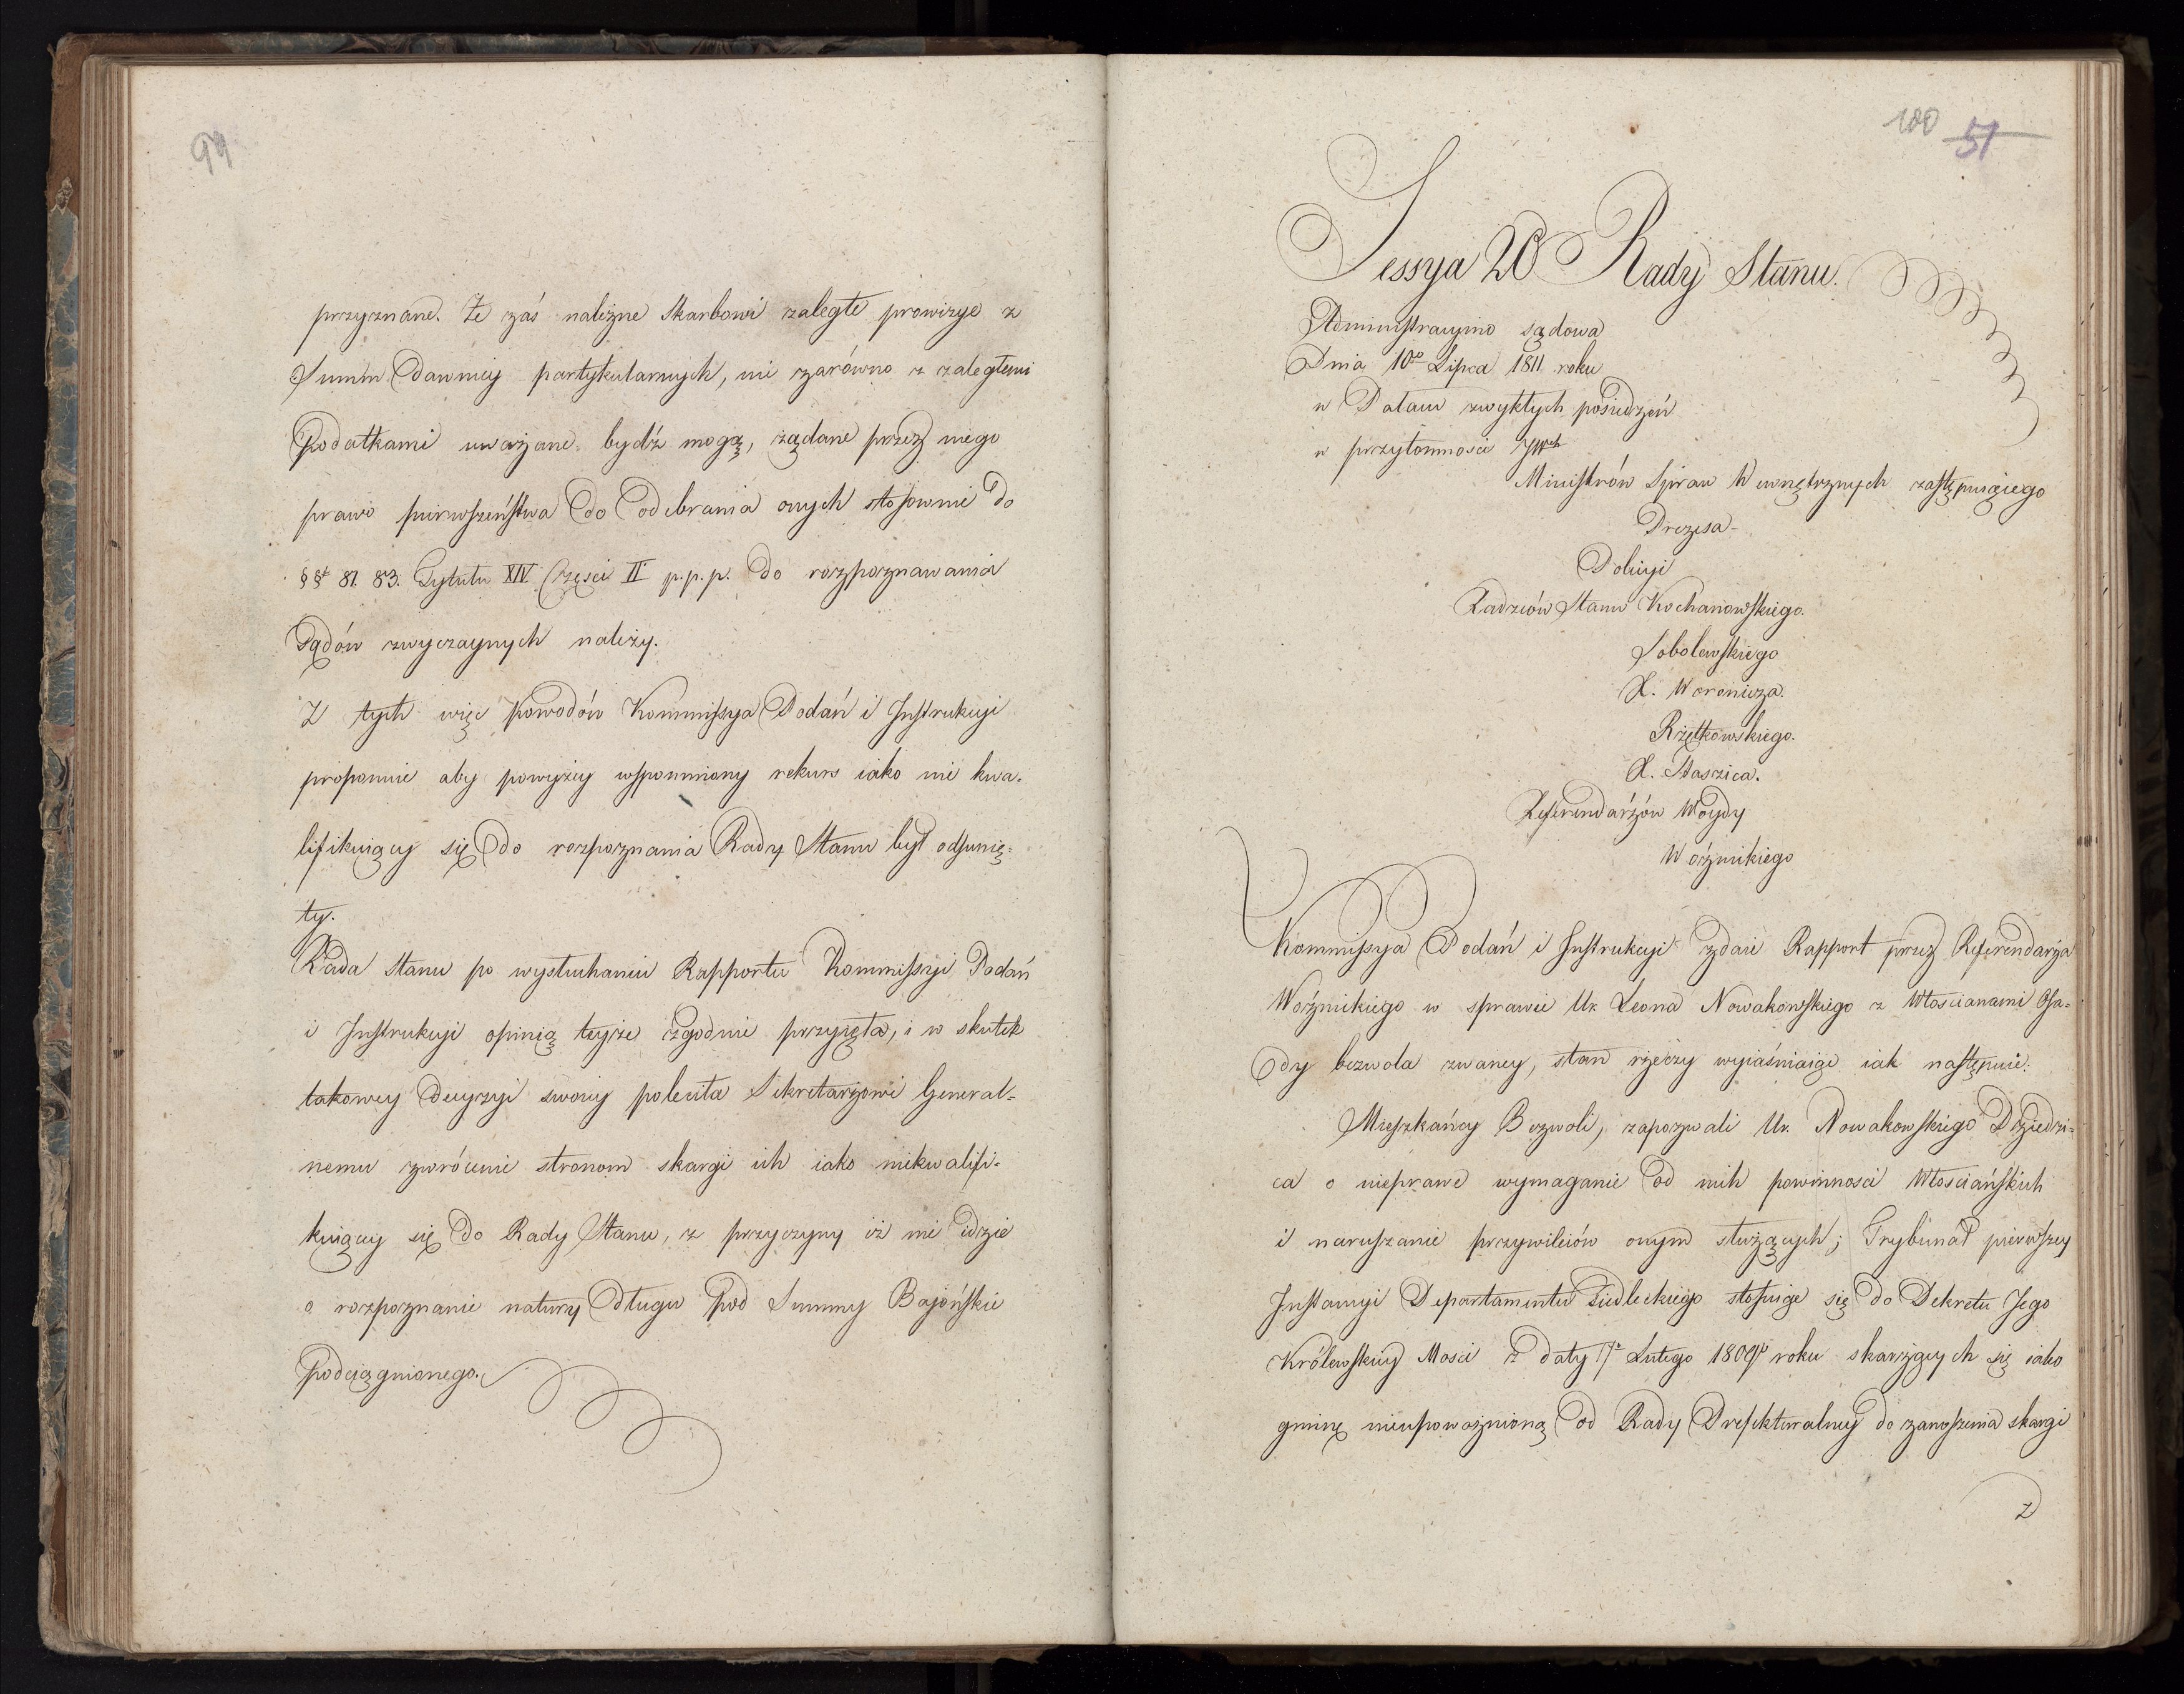 99
przyznane. Że zaś należne Skarbowi zaległe prowizye z
Summ dawniey partykularnych, nie zarówno z zaległemi
Podatkami uważane bydź mogą, żądane przez niego
prawo pierwszeństwa do odebrania onych stosownie do
§§ 81. 83. Tytułu XIV Części II p.p.p. do rozpoznawania
Sądów zwyczaynych należy.
Z tych więc powodów Kommissya Podań i Instrukcyi
proponuie aby powyżey wspomniony rekurs iako nie kwa-
lifikuiący się do rozpoznania Rady Stanu był odsunię-
ty.
Rada Stanu po wysłuchaniu Rapportu Kommissyi Podań
i Instrukcyi opinią teyże zgodnie przyięła, i w skutek
takowey decyzyi swoiey poleciła Sekretarzowi General-
nemu zwrócenie stronom skargi ich iako niekwalifi-
kuiącey się do Rady Stanu, z przyczyny iż nie idzie
o rozpoznanie natury długu pod Summy Bajońskie
podciągnionego.
100 51
Sessya 20 Rady Stanu.
Administracyino sądowa
Dnia 10go Lipca 1811 roku
w Pałacu zwykłych posiedzeń
w przytomności JWch
Ministrów Spraw Wewnętrznych zastępuiącego
Prezesa
Policyi
Radzców Stanu Kochanowskiego.
Sobolewskiego
X. Woronicza.
Rzętkowskiego.
X. Staszica.
Referendarzów Woydy
Woźnickiego
Kommissya Podań i Instrukcyi zdaie Rapport przez Referendarza
Woźnickiego w sprawie Ur. Leona Nowakowskiego z Włościanami Osa-
dy bezwola zwaney, stan rzeczy wyiaśniaiąc iak następuie:
Mieszkańcy Bezwoli, zapozwali Ur. Nowakowskiego Dziedzi-
ca o nieprawe wymaganie od nich powinności Włościańskich
i naruszanie przywileiów onym służących; Trybunał pierwszey
Instancyi Departamentu Siedleckiego stosuiąc się do Dekretu Jego
Królewskiey Mości z daty 7o Lutego 1809go roku skarżących się iako
gminę nieupoważnioną od Rady Prefekturalney do zanoszenia skargi
z